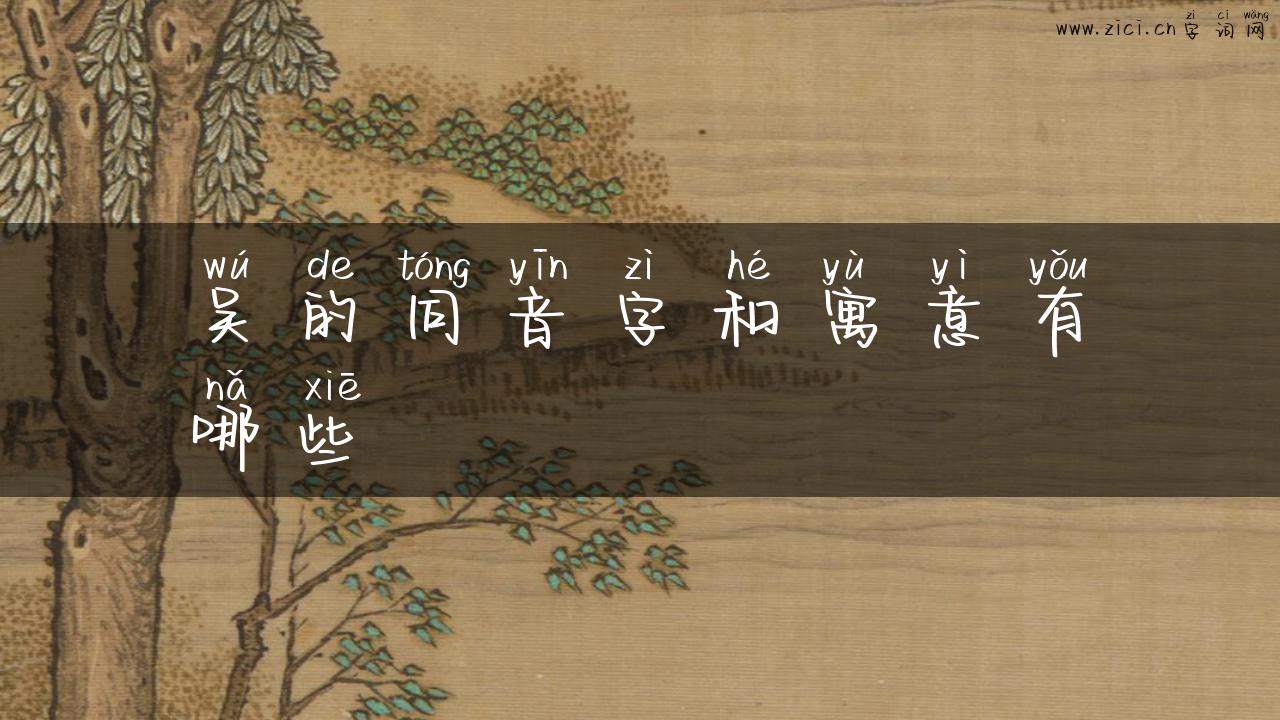 zì cí wǎng
www.zici.cn 字词网
wú de tóng yīn zì hé yù yì yǒu
吴的同音字和寓意有
nǎ xiē
哪些